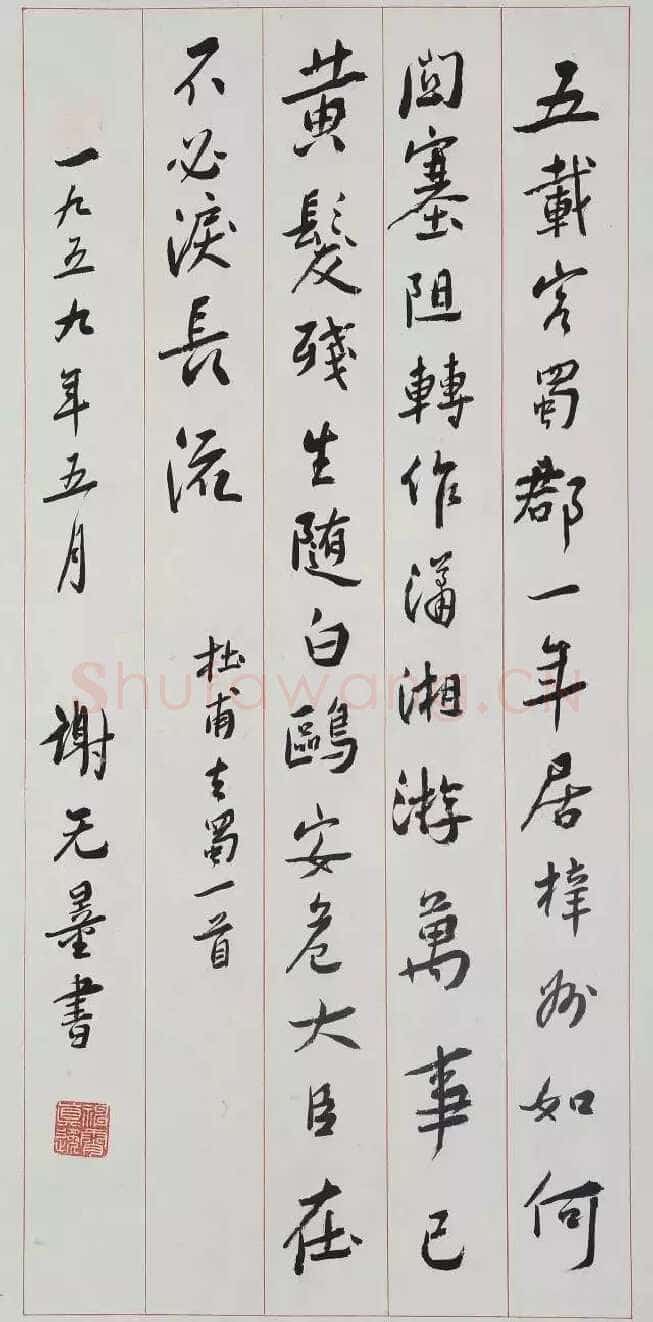 五載客蜀郡一年居梓州如何
関塞阻轉作瀟湘游萬事已
黃髮殘生随白鷗安危大臣在
不必淚長流
杜甫去蜀一首
一九五九年五月
謝无量書
Shufawang.CN